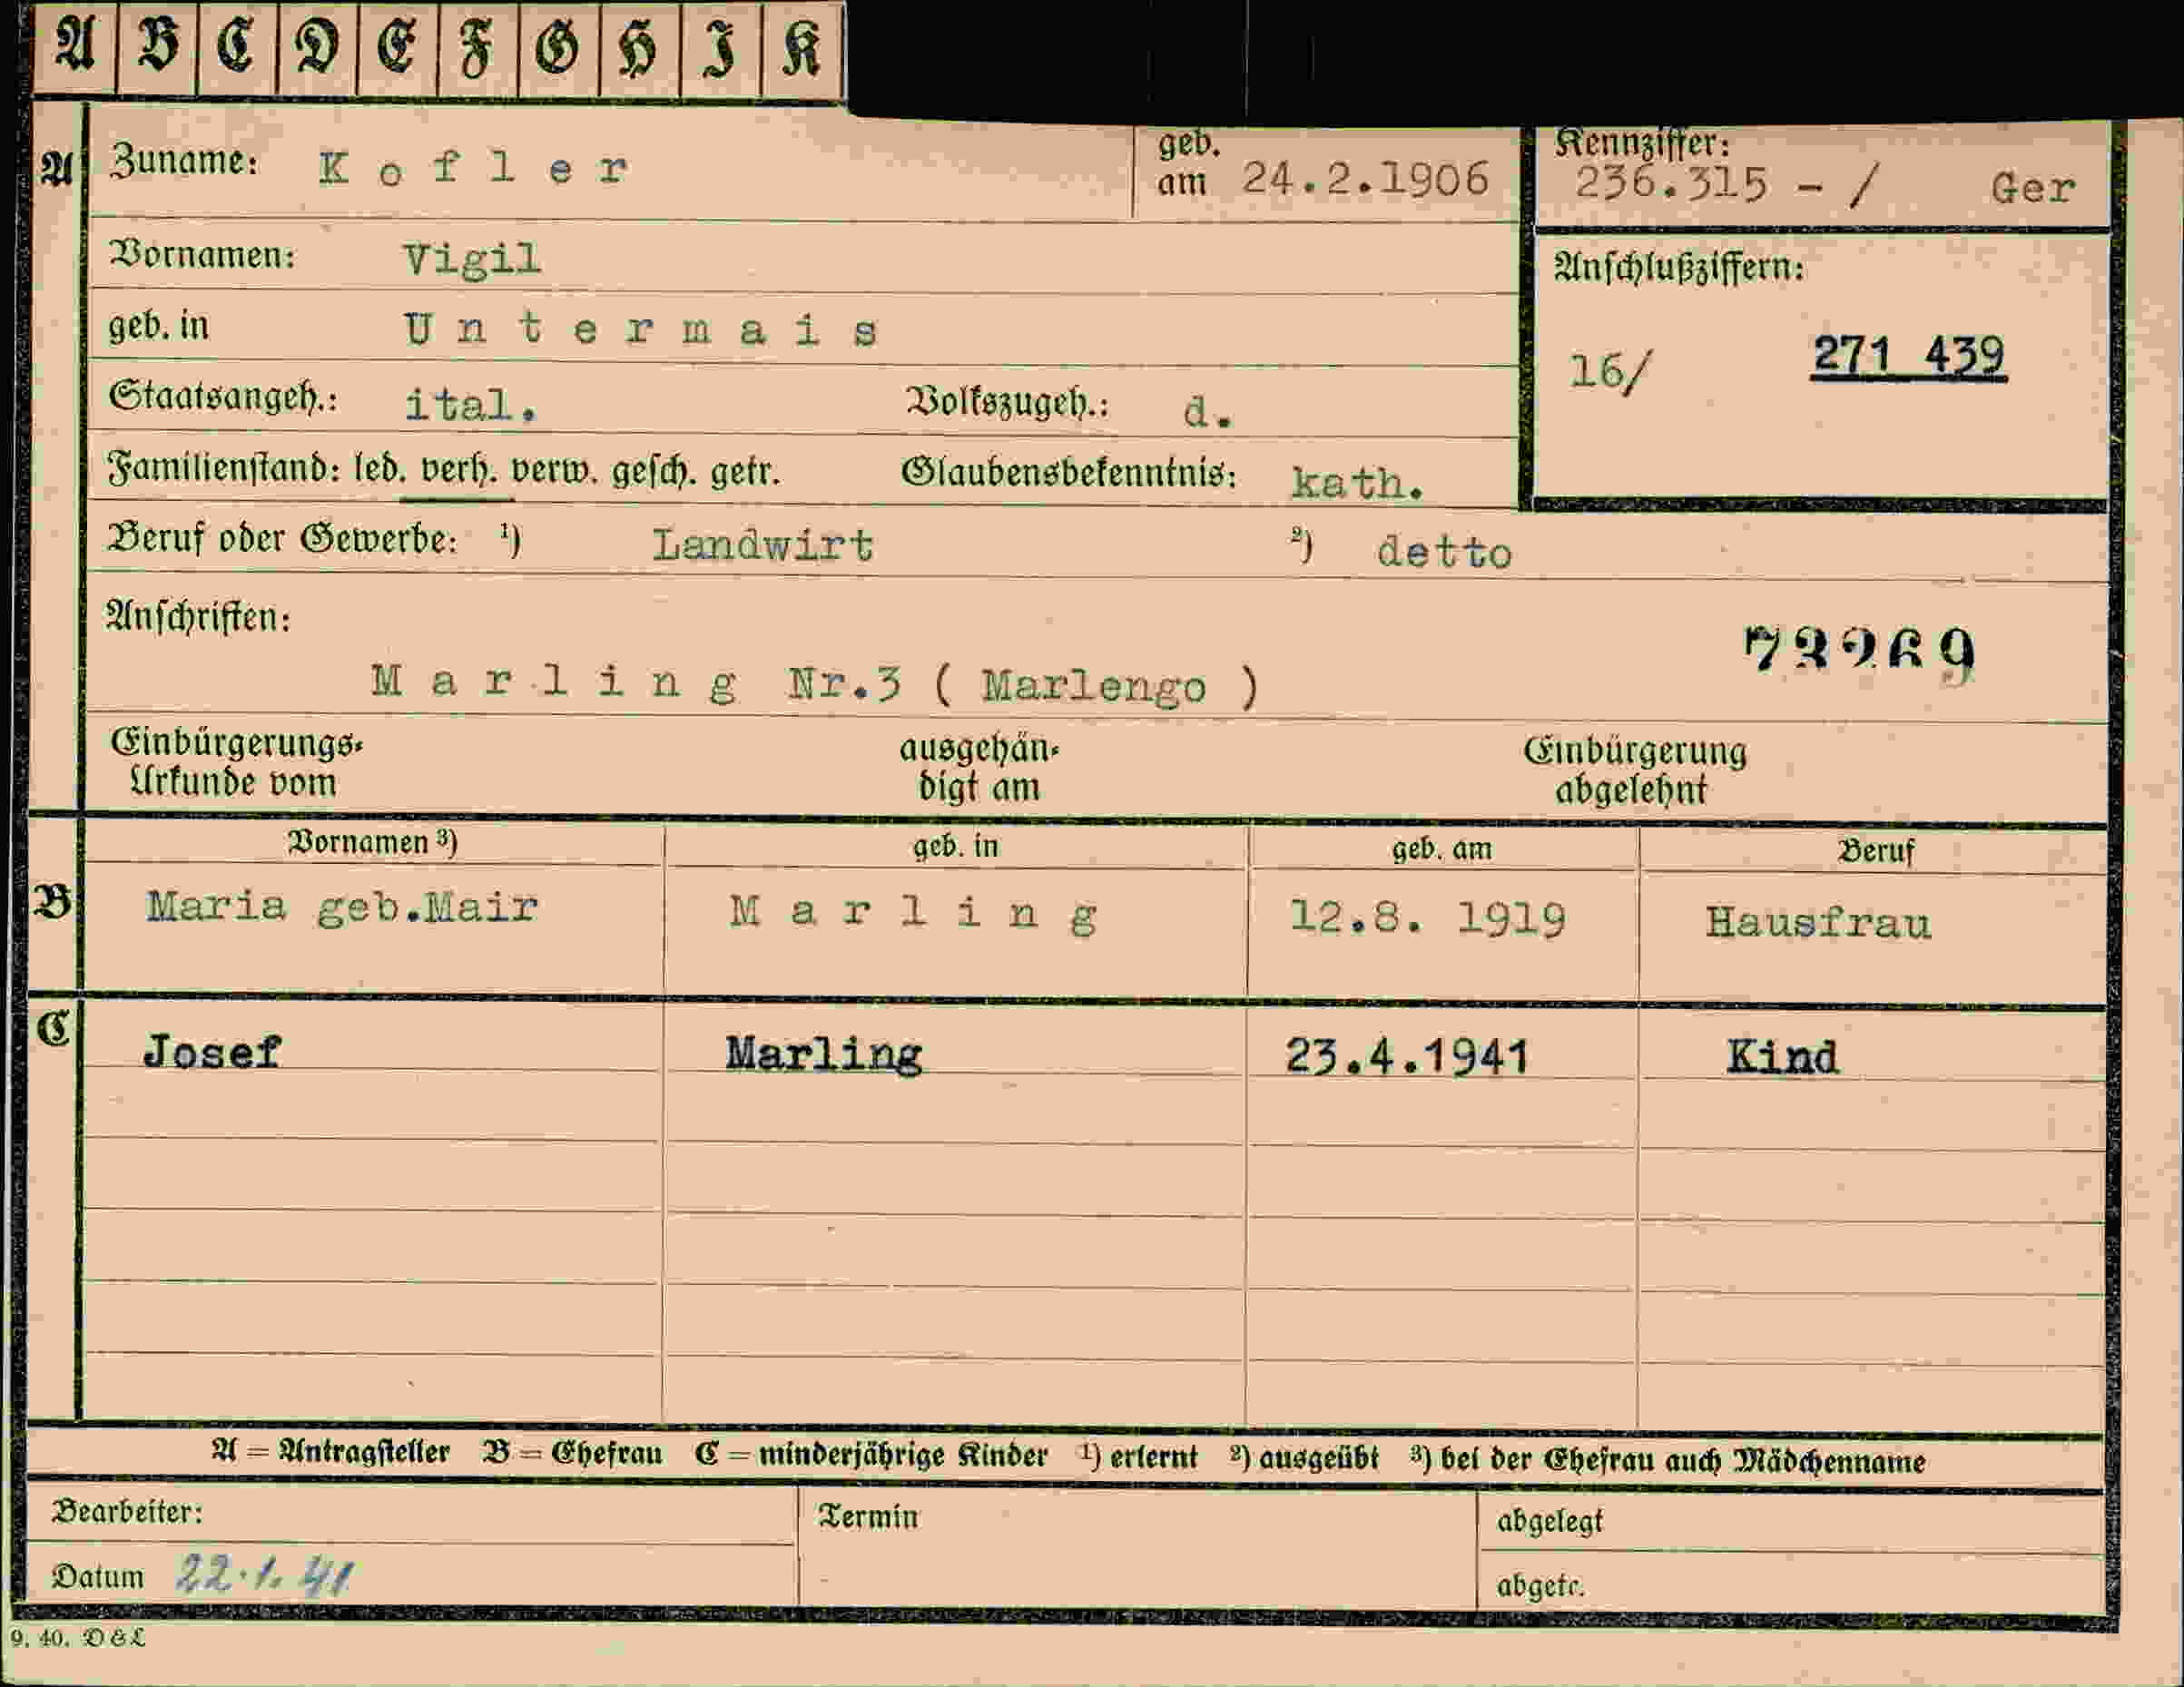 A B C D E F G H I K
A Zuname: Kofler geb. am 24.2.1906 Kennziffer: 236.315 - / Ger
Vornamen: Vigil Anschlußziffern:
geb. in Untermais 16/ 271 439
Staatsangeh.: ital. Volkszugeh.: d.
Familienstand: led. verh. verw. gesch. getr. Glaubensbekenntnis: kath.
Beruf oder Gewerbe: ¹) Landwirt ²) detto
Anschriften:
73269
Marling Nr.3 ( Marlengo )
Einbürgerungs- ausgehän- Einbürgerung
Urkunde vom digt am abgelehnt
Vornamen ³) geb. in geb. am Beruf
B Maria geb.Mair Marling 12.8. 1919 Hausfrau
C Josef Marling 23.4.1941 Kind
A = Antragsteller B = Ehefrau C = minderjährige Kinder ¹) erlernt ²) ausgeübt ³) bei der Ehefrau auch Mädchenname
Bearbeiter: Termin abgelegt
Datum 22.1.41 abgetr.
9. 40. D & L